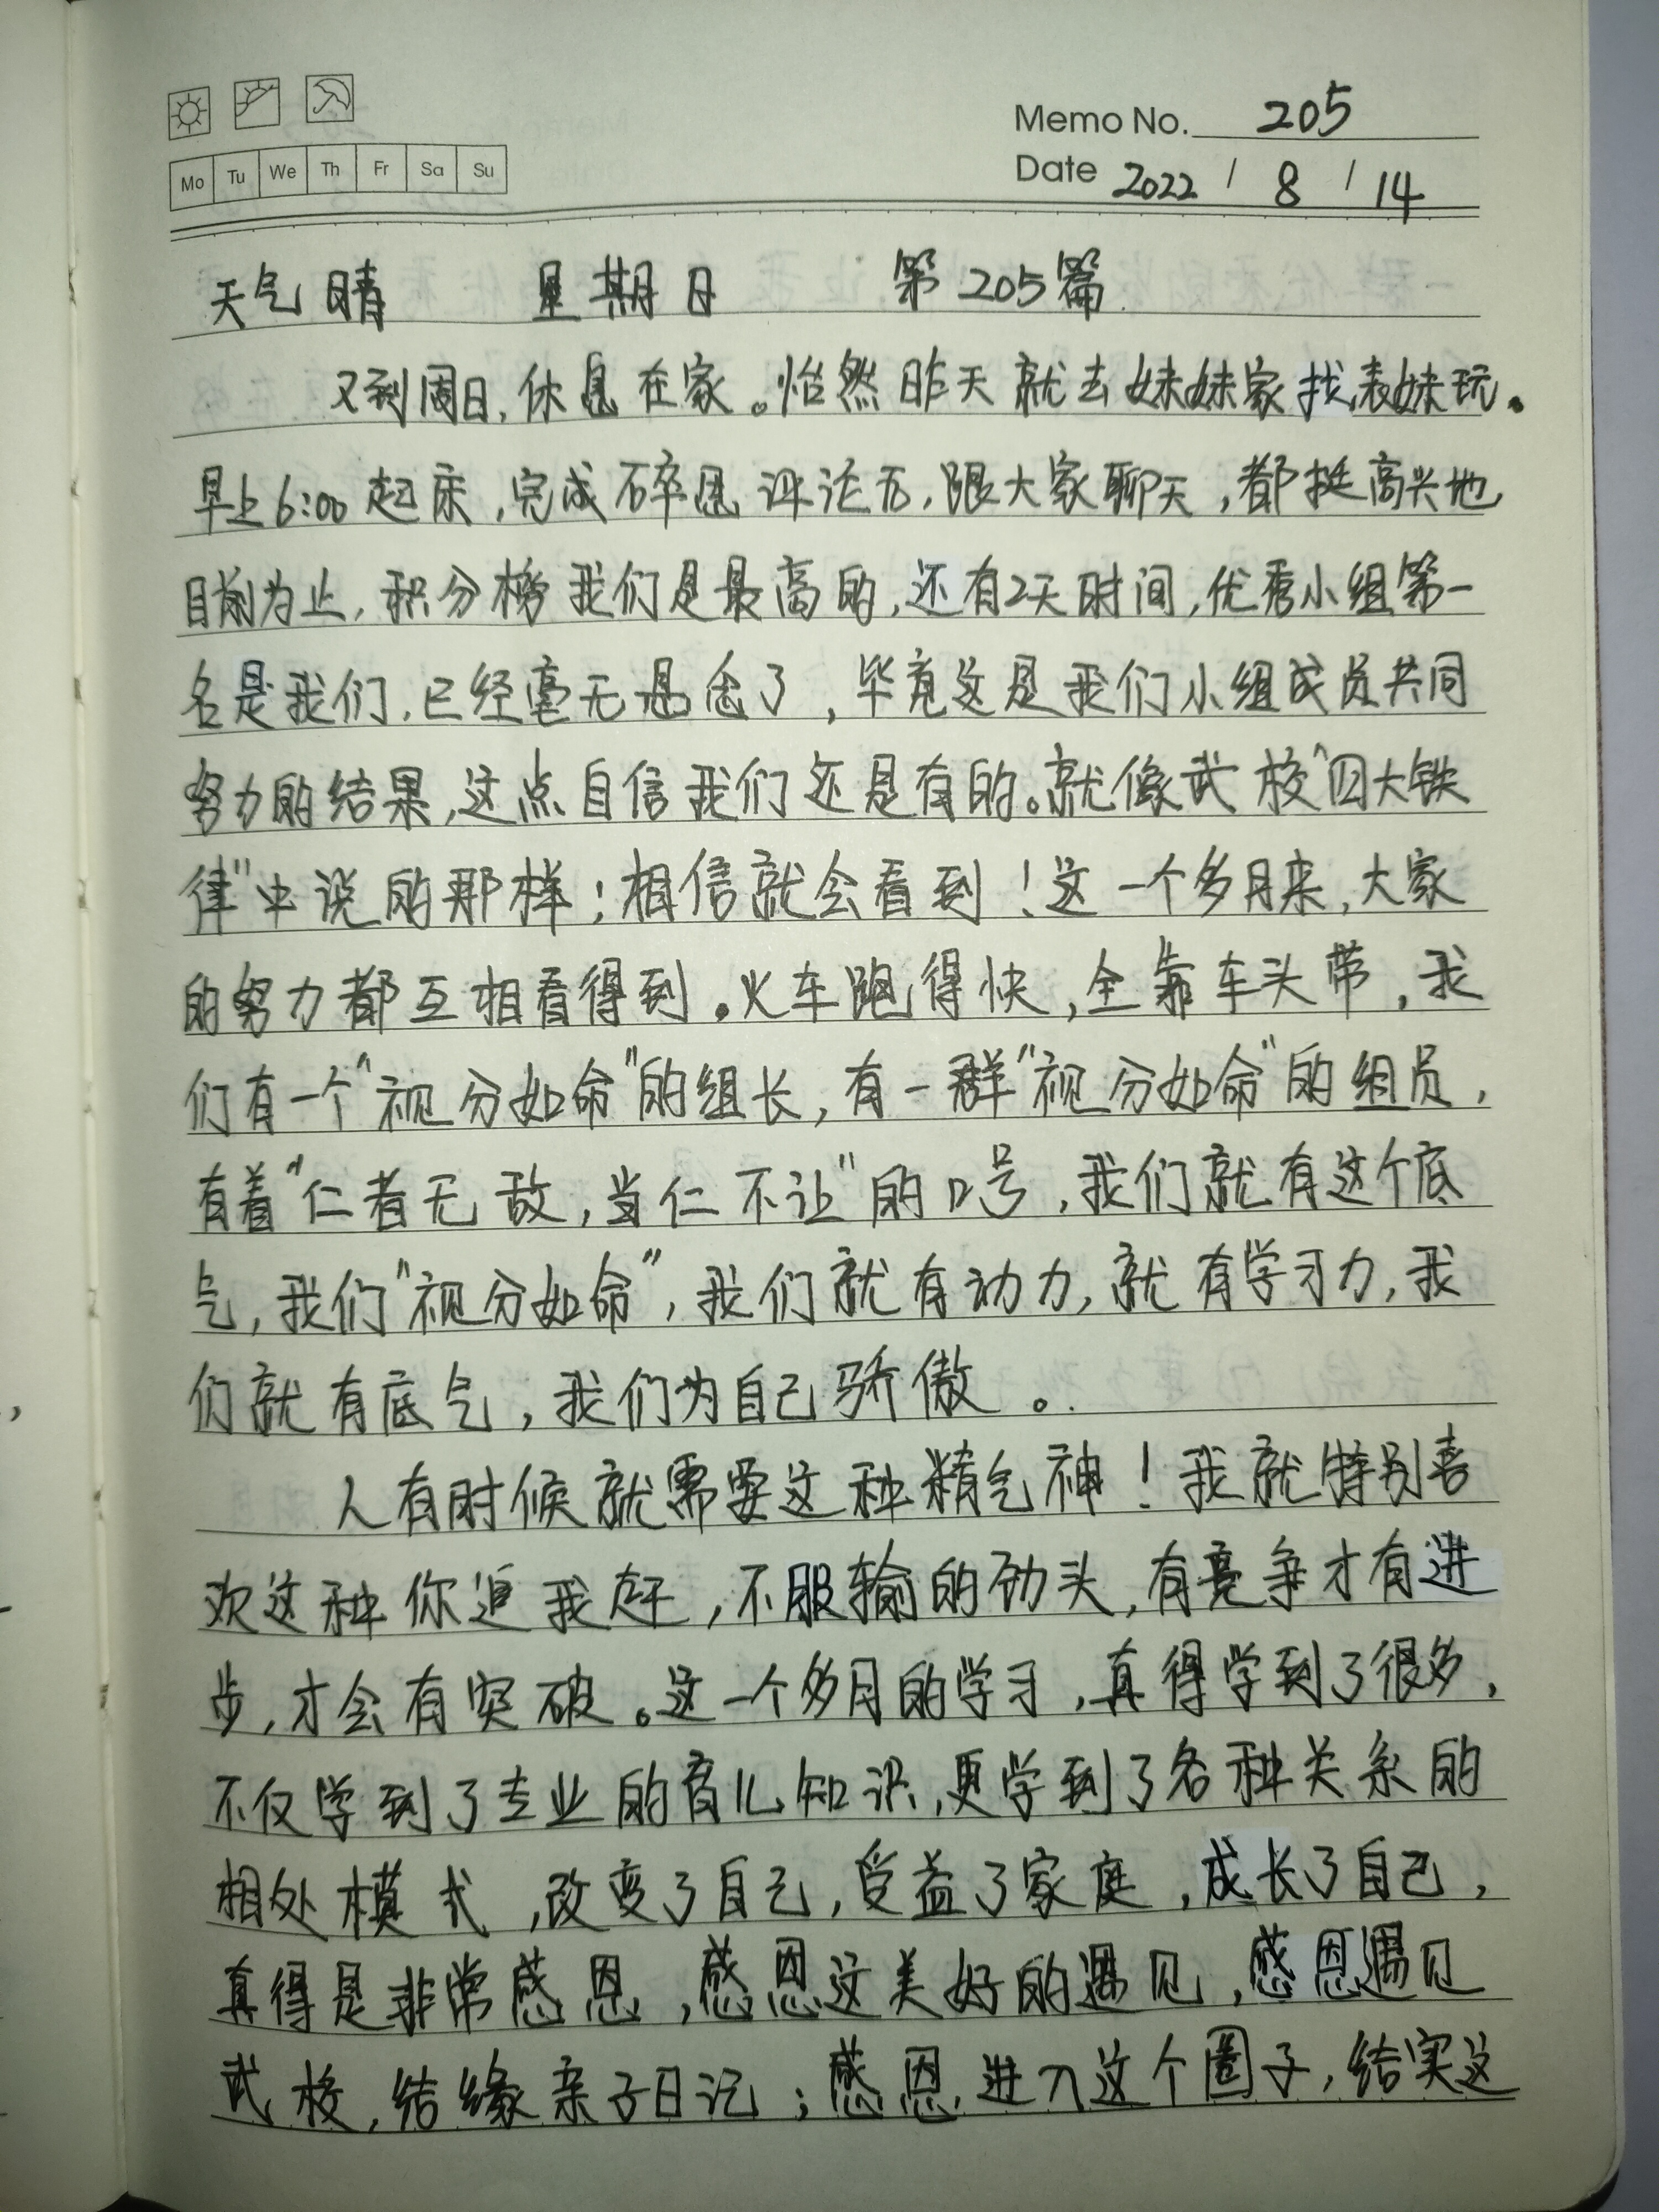 Memo No. 205
Mo Tu We Th Fr Sa Su
Date 2022 / 8 / 14
天气晴 星期日 第205篇
又到周日,休息在家。怡然昨天就去妹妹家找表妹玩。
早上6:00起床,完成碎恩评论后,跟大家聊天,都挺高兴地
目前为止,积分榜我们是最高的,还有2天时间,优秀小组第一
名是我们,已经毫无悬念了,毕竟这是我们小组成员共同
努力的结果,这点自信我们还是有的。就像武校"四大铁
律"中说的那样:相信就会看到!这一个多月来,大家
的努力都互相看得到。火车跑得快,全靠车头带,我
们有一个"视分如命"的组长,有一群"视分如命"的组员,
有着"仁者无敌,当仁不让"的口号,我们就有这个底
气,我们"视分如命",我们就有动力,就有学习力,我
们就有底气,我们为自己骄傲。
人有时候就需要这种精气神!我就特别喜
欢这种你追我赶,不服输的劲头,有竞争才有进
步,才会有突破。这一个多月的学习,真得学到了很多,
不仅学到了专业的育儿知识,更学到了各种关系的
相处模式,改变了自己,受益了家庭,成长了自己,
真得是非常感恩,感恩这美好的遇见,感恩遇见
武校,结缘亲子日记;感恩进入这个圈子,结实这